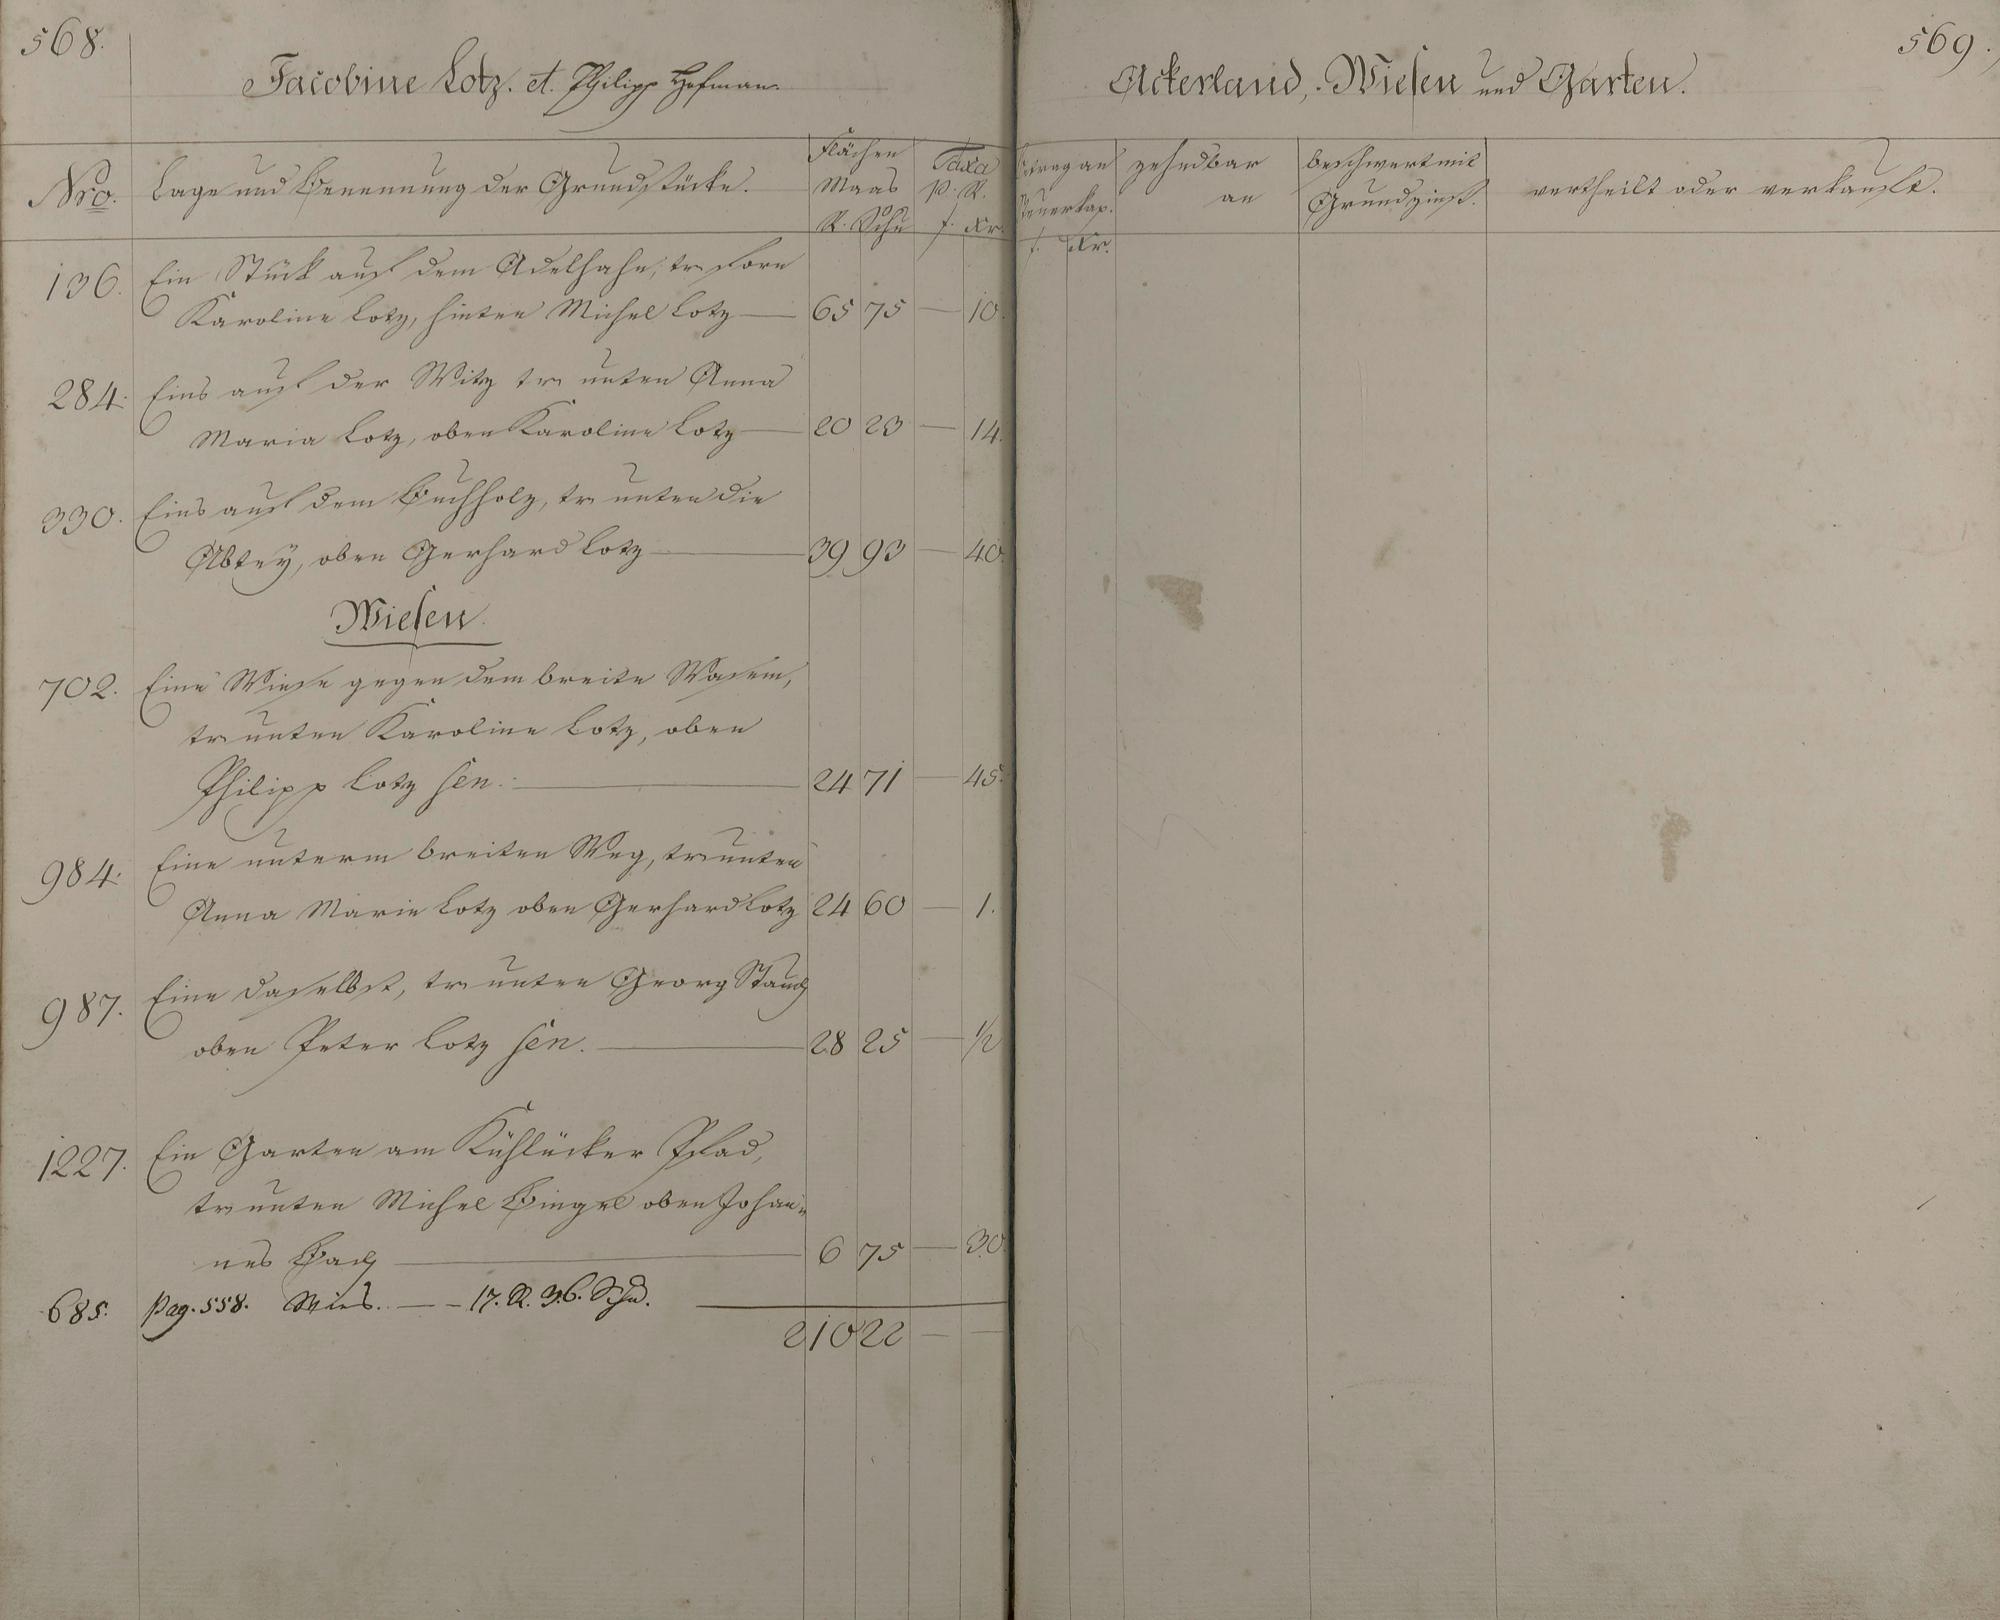 568.
Jacobine Lotz. et. Philipp Hofman.
Nro. Lage und Benennung der Grundstücke. Flächen Maas R. Schu Taxa p. R. f. Kr.
136. Ein Stück auf dem Adelhahn, tr. forn
Karoline Lotz, hinten Michel Lotz — 65 75 — 10.
284. Eins auf der Witz tr. unten Anna
Maria Lotz, oben Karoline Lotz — 20 23 — 14.
330. Eins auf dem Buchholz, tr. unten die
Abtey, oben Gerhard Lotz — 39 93 — 40.
Wiesen.
702. Eine Wiese gegen dem breite Wasem,
tr. unten Karoline Lotz, oben
Philipp Lotz sen. — 24 71 — 45.
984. Eine unterm breiten Weg, tr. unten
Anna Marie Lotz oben Gerhard Lotz 24 60 — 1.
987. Eine daselbst, tr. unten Georg Stauch
oben Peter Lotz sen. — 28 25 — 1/2
1227. Ein Garten am Kühlücker Pfad,
tr. unten Michel Bingel oben Johan-
nes Bach — 6 75 — 30
685. Pag. 558. Wies. — 17. R. 36. Schu.
210 22 — —
569.
Ackerland, Wiesen und Garten.
Betrag an Steuerkap. f. Kr. zehndbar an beschwert mit Grundzinß. vertheilt oder verkauft.